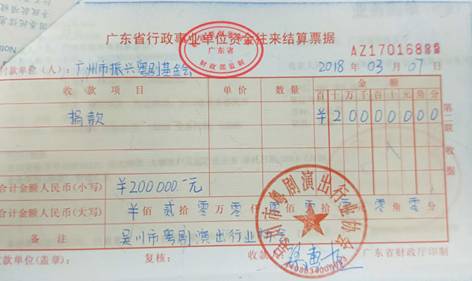 广东省行政事业单位资金往来结算票据
广东省
财政部监制
AZ1701688
付款单位(人): 广州市振兴粤剧基金会 2018年03月07日
收款项目 单价 数量 金额
百十万千百十元角分
捐款 ¥20000000
第二联 收据
合计金额人民币(小写) ¥200000.-元
合计金额人民币(大写) ¥佰贰拾零万零仟佰零角零分
备注 吴川市粤剧演出行业协会
吴川市粤剧演出行业协会
付款单位(盖章): 复核: 收款人: 广东省财政厅印制